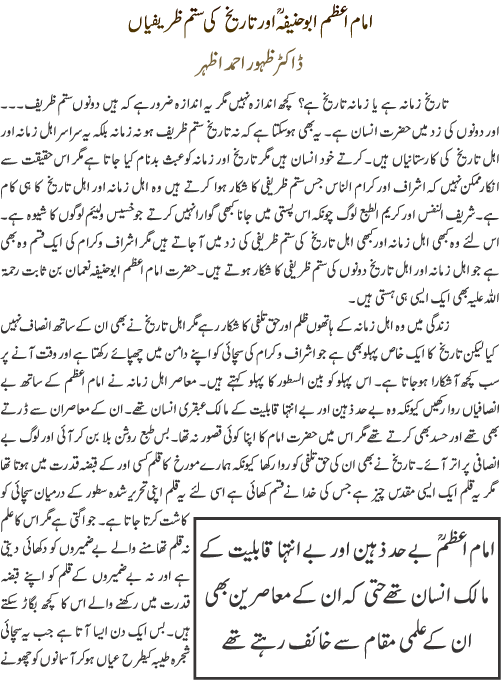 امام اعظم ابوحنیفہؒ اور تاریخ کی ستم ظریفیاں
ڈاکٹر ظہور احمد اظہر
تاریخ زمانہ ہے یا زمانہ تاریخ ہے؟ کچھ اندازہ نہیں مگر یہ اندازہ ضرور ہے کہ ہیں دونوں ستم ظریف۔۔۔
اور دونوں کی زد میں حضرت انسان ہے۔ یہ بھی ہوسکتا ہے کہ نہ تاریخ ستم ظریف ہو نہ زمانہ بلکہ یہ سراسر اہل زمانہ اور
اہل تاریخ کی کارستانیاں ہیں۔ کرتے خود انسان ہیں مگر تاریخ اور زمانہ کو عبث بدنام کیا جاتا ہے مگر اس حقیقت سے
انکار ممکن نہیں کہ اشراف اور کرام الناس جس ستم ظریفی کا شکار ہوا کرتے ہیں وہ اہل زمانہ اور اہل تاریخ کا ہی کام
ہے۔ شریف النفس اور کریم الطبع لوگ چونکہ اس پستی میں جانا بھی گوارا نہیں کرتے جو خسیس ولئیم لوگوں کا شیوہ ہے۔
اس لئے وہ کبھی اہل زمانہ اور کبھی اہل تاریخ کی ستم ظریفی کی زد میں آجاتے ہیں مگر اشراف وکرام کی ایک قسم وہ بھی
ہے جو اہل زمانہ اور اہل تاریخ دونوں کی ستم ظریفی کا شکار ہوتے ہیں۔ حضرت امام اعظم ابوحنیفہ نعمان بن ثابت رحمۃ
اللہ علیہ بھی ایک ایسی ہی ہستی ہیں۔
زندگی میں وہ اہل زمانہ کے ہاتھوں ظلم اور حق تلفی کا شکار رہے مگر اہل تاریخ نے بھی ان کے ساتھ انصاف نہیں
کیا لیکن تاریخ کا ایک خاص پہلو بھی ہے جو اشراف وکرام کی سچائی کو اپنے دامن میں چھپائے رکھتا ہے اور وقت آنے پر
سب کچھ آشکارا ہوجاتا ہے۔ اس پہلو کو بین السطور کا پہلو کہتے ہیں۔ معاصر اہل زمانہ نے امام اعظم کے ساتھ بے
انصافیاں روا رکھیں کیونکہ وہ بے حد ذہین اور بے انتہا قابلیت کے مالک عبقری انسان تھے۔ ان کے معاصران سے ڈرتے
بھی تھے اور حسد بھی کرتے تھے مگر اس میں حضرت امام کا اپنا کوئی قصور نہ تھا۔ بس طبع روشن بلا بن کر آئی اور لوگ بے
انصافی پر اتر آئے۔ تاریخ نے بھی ان کی حق تلفی کو روا رکھا کیونکہ ہمارے مورخ کا قلم کسی اور کے قبضہ قدرت میں ہوتا تھا
مگر یہ قلم ایک ایسی مقدس چیز ہے جس کی خدا نے قسم کھائی ہے اسی لئے یہ قلم اپنی تحریر شدہ سطور کے درمیان سچائی کو
کاشت کرتا جاتا ہے۔ جو اگتی ہے مگر اس کا علم
نہ قلم تھامنے والے بے ضمیروں کو دکھائی دیتی
ہے اور نہ بے ضمیروں کے قلم کو اپنے قبضہ
قدرت میں رکھنے والے اس کا کچھ بگاڑ سکتے
ہیں۔ بس ایک دن ایسا آتا ہے جب یہ سچائی
شجرہ طیبہ کیطرح عیاں ہوکر آسمانوں کو چھونے
امام اعظمؒ بے حد ذہین اور بے انتہا قابلیت کے
مالک انسان تھے حتی کہ ان کے معاصرین بھی
ان کے علمی مقام سے خائف رہتے تھے